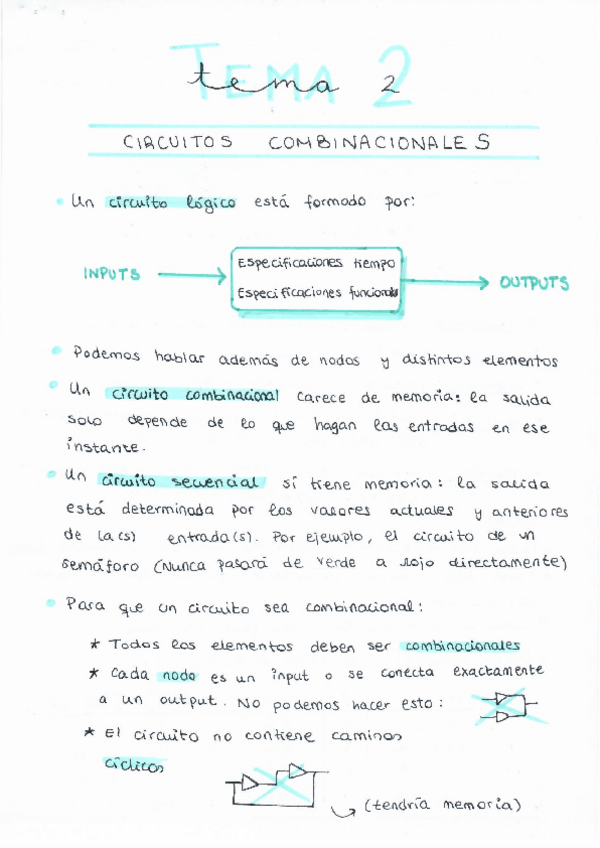 TEMA 2
tema 2
CIRCUITOS COMBINACIONALES
Un circuito lógico está formado por:
INPUTS
Especificaciones tiempo
Especificaciones funcionales
OUTPUTS
Podemos hablar además de nodos y distintos elementos
Un circuito combinacional carece de memoria: la salida
solo depende de lo que hagan las entradas en ese
instante.
Un circuito secuencial sí tiene memoria: la salida
está determinada por los valores actuales y anteriores
de la(s) entrada(s). Por ejemplo, el circuito de un
semáforo (Nunca pasará de verde a rojo directamente)
Para que un circuito sea combinacional:
* Todos los elementos deben ser combinacionales
* Cada nodo es un input o se conecta exactamente
a un output. No podemos hacer esto:
* El circuito no contiene caminos
cíclicos
(tendría memoria)